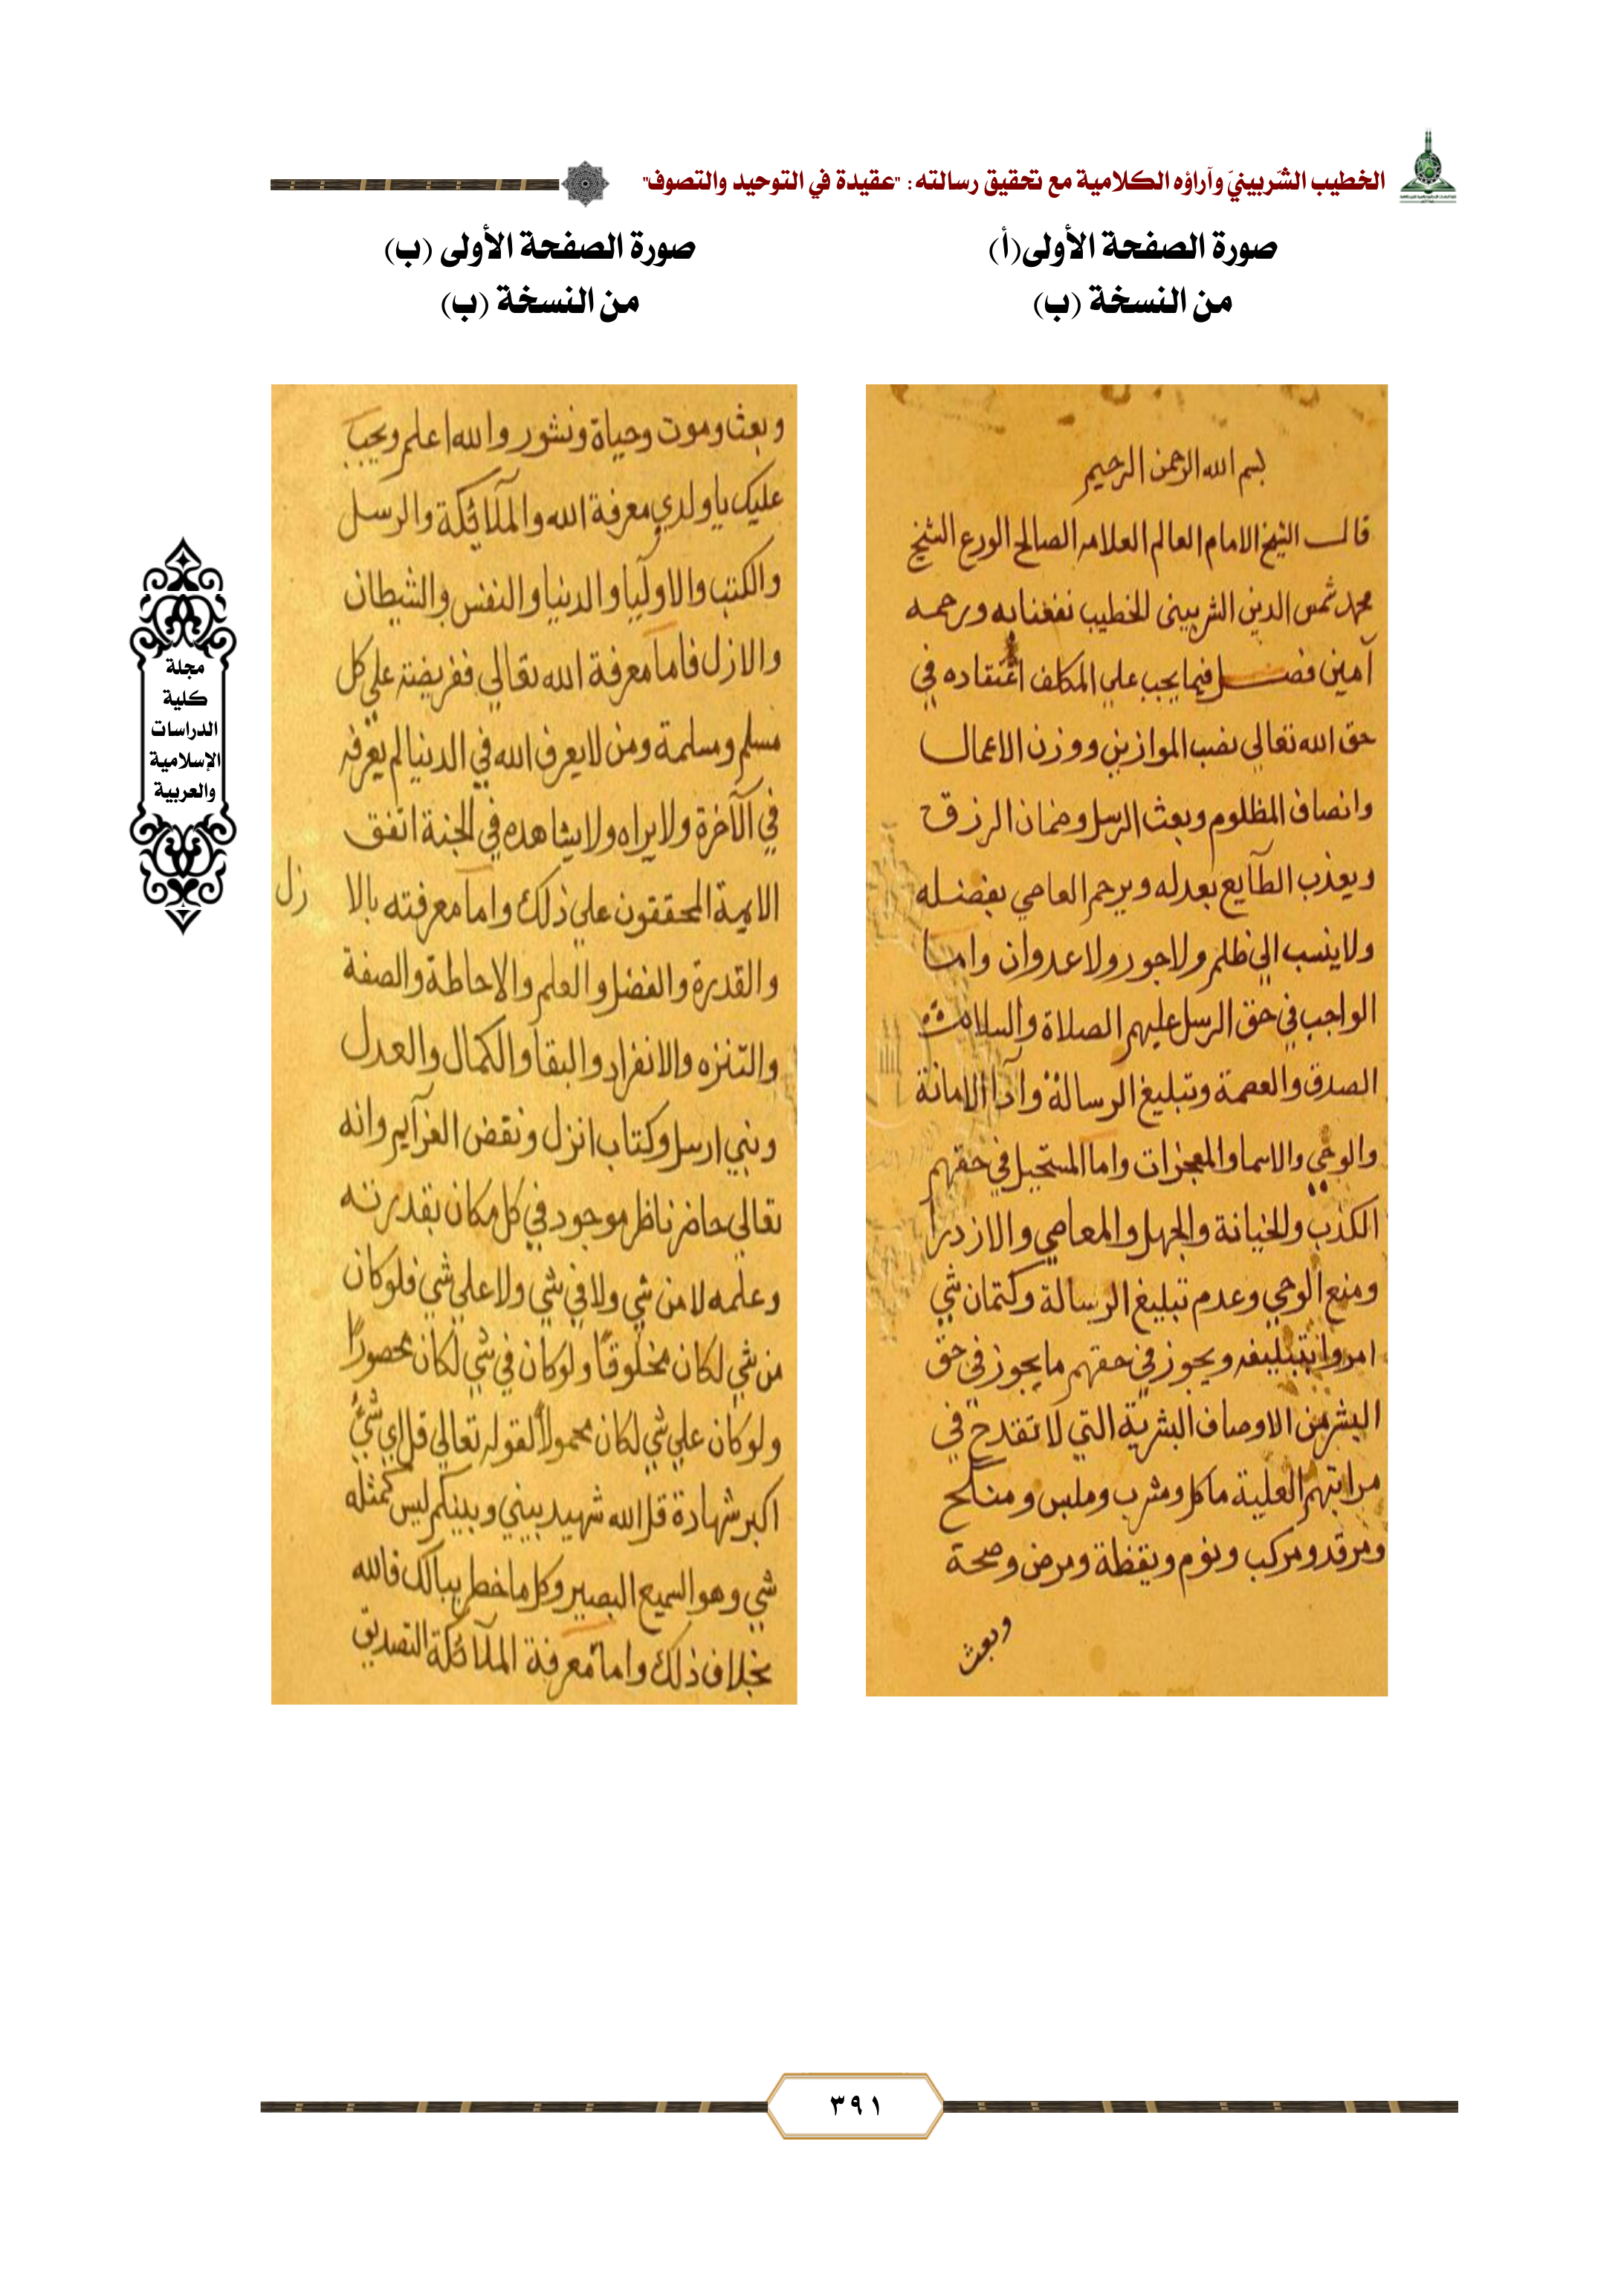 الخطيب الشربيني وآراؤه الكلامية مع تحقيق رسالته: "عقيدة في التوحيد والتصوف"
صورة الصفحة الأولى(أ)
من النسخة (ب)
بسم الله الرحمن الرحيم
قال الشيخ الامام العالم العلامه الصالح الورع الشيخ
محمد شمس الدين الشربيني الخطيب نفعنا به ورحمه
آمين فصل فيما يجب علي المكلف اعتقاده في
حق الله تعالي نصب الموازين ووزن الاعمال
وانصاف المظلوم وبعث الرسل وضمان الرزق
ويعذب الطآيع بعدله ويرحم العاصي بفضله
ولا ينسب الي ظلم ولا جور ولا عدوان واما
الواجب في حق الرسل عليهم الصلاة والسلام
الصدق والعصمة وتبليغ الرسالة وآدا الامانة
والوحي والاسما والمعجزات واما المستحيل في حقهم
الكذب والخيانة والجهل والمعاصي والازدرا
ومنع الوحي وعدم تبليغ الرسالة وكتمان شي
امروا بتبليغه ويجوز في حقهم ما يجوز في حق
البشر من الاوصاف البشرية التي لا تقدح في
مراتبهم العلية ماكل ومشرب وملبس ومنكح
ومرقد ومركب ونوم ويقظة ومرض وصحة
وبعث
صورة الصفحة الأولى (ب)
من النسخة (ب)
وبعث وموت وحياة ونشور والله اعلم ويجب
عليك يا ولدي معرفة الله والملآئكة والرسل
والكتب والاوليآ والدنيا والنفس والشيطان
والازل فاما معرفة الله تعالي ففريضة علي كل
مسلم ومسلمة ومن لا يعرف الله في الدنيا لم يعرفه
في الآخرة ولا يراه ولا يشاهده في الجنة اتفق
الايمة المحققون علي ذلك واما معرفته بالا زل
والقدرة والفضل والعلم والاحاطة والصفة
والتنزه والانفراد والبقآ والكمال والعدل
ونبي ارسل وكتاب انزل ونقض العزآيم وانه
تعالي حاضر ناظر موجود في كل مكان بقدرته
وعلمه لا من شي ولا في شي ولا علي شي فلو كان
من شي لكان مخلوقا ولو كان في شي لكان محصورًا
ولو كان علي شي لكان محمولا لقوله تعالي قل اي شيء
اكبر شهادة قل الله شهيد بيني وبينكم ليس كمثله
شي وهو السميع البصير وكل ما خطر ببالك فالله
بخلاف ذلك واما معرفة الملآئكة التصديق
مجلة
كلية
الدراسات
الإسلامية
والعربية
٣٩١